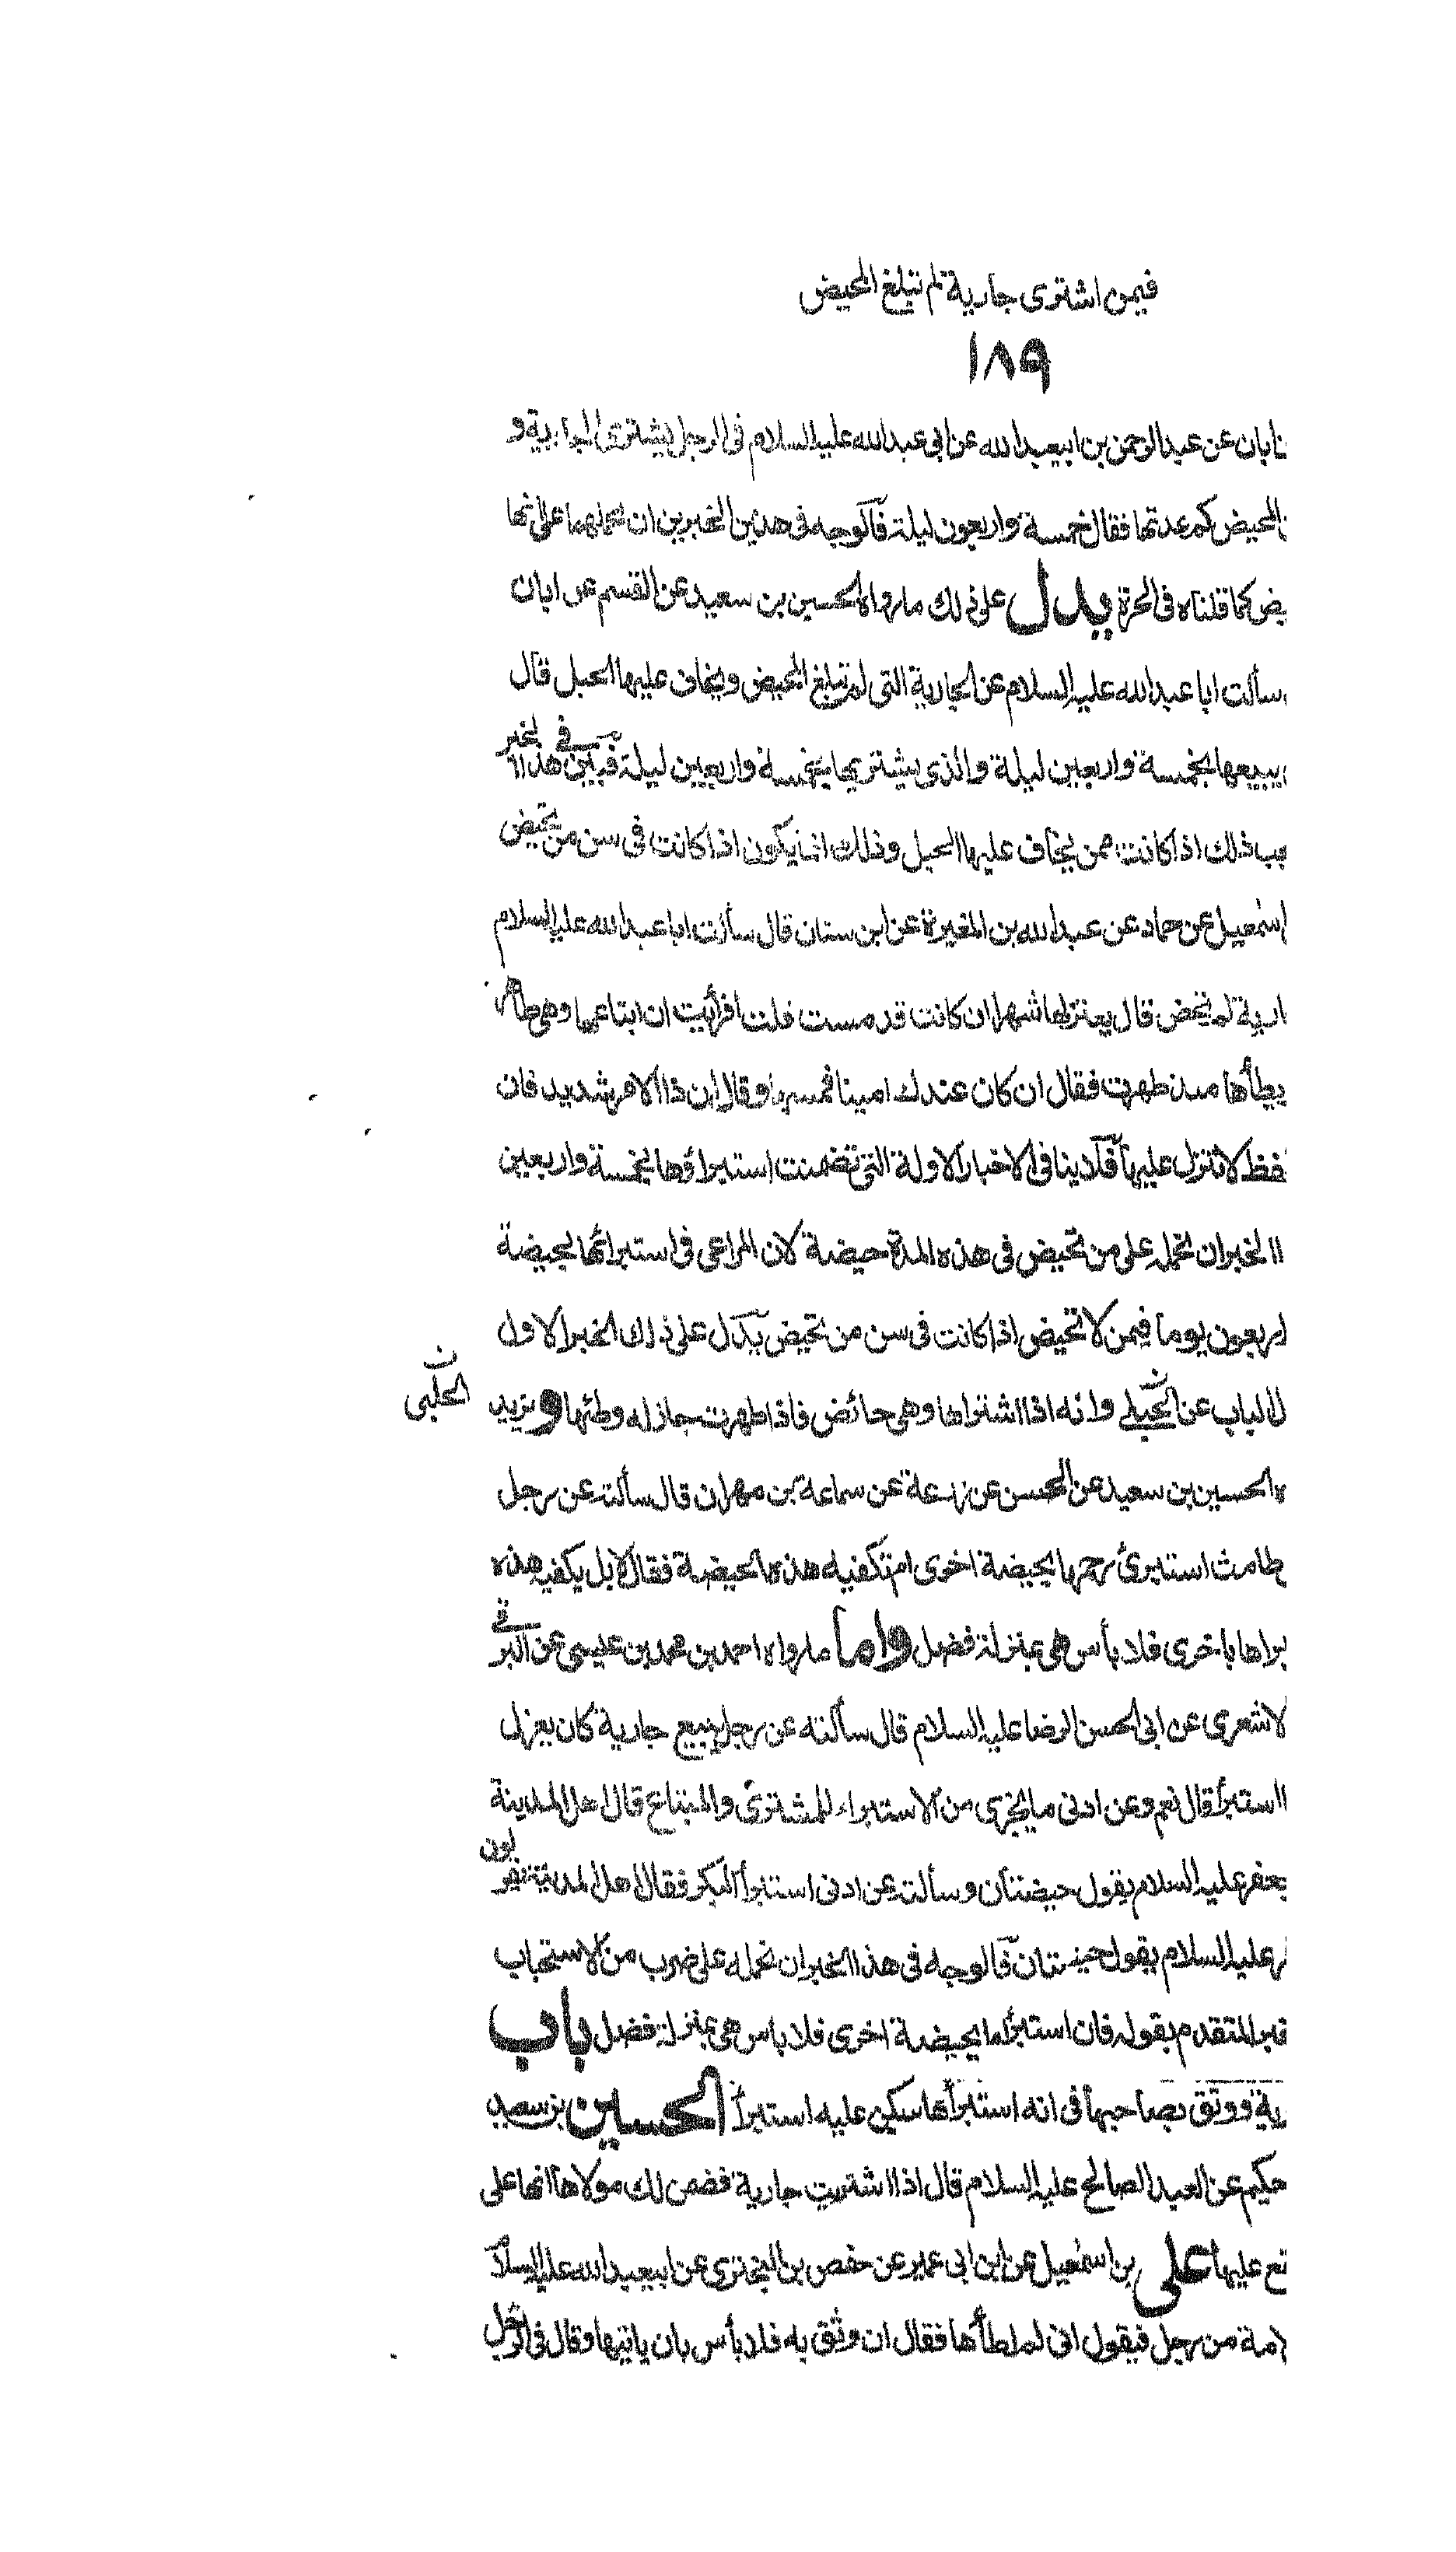 فيمن اشترى جارية لم تبلغ المحيض
١٨٩
ابان عن عبد الرحمن بن ابيعبد الله عن ابى عبد الله عليه السلام فى الرجل يشترى الجارية و
المحيض كم عدتها فقال خمسة واربعون ليلة فالوجه فى هذين الخبرين ان نحملهما على انها
يض كما قلناه فى الحرة يدل على ذلك ما رواه الحسين بن سعيد عن القسم عن ابان
سألت ابا عبد الله عليه السلام عن الجارية التى لم تبلغ المحيض ويخاف عليها الحبل قال
يبيعها بخمسة واربعين ليلة والذى يشتريها بخمسة واربعين ليلة فبين فى هذا الخبر
ذلك اذا كانت ممن يخاف عليها الحبل وذلك انما يكون اذا كانت فى سن من تحيض
اسمعيل عن حماد عن عبد الله بن المغيرة عن ابن سنان قال سألت ابا عبد الله عليه السلام
ارية لم تحض قال يعتزلها شهرا ان كانت قد مست قلت افرأيت ان ابتاعها وهى طاهر
يطأها منذ طهرت فقال ان كان عندك امينا فمسها وقال ان ذا الامر شديد فان
فظ لا تنزل عليها فلا ينافى الاخبار الاولة التى تضمنت استبراؤها بخمسة واربعين
الخبران نحمله على من تحيض فى هذه المدة حيضة لان المراعى فى استبرائها بحيضة
اربعون يوما فيمن لا تحيض اذا كانت فى سن من تحيض يدل على ذلك الخبر الاول
ل الباب عن الحبلى وانه اذا اشتراها وهى حائض فاذا طهرت جاز له وطئها ويزيد
ن الحلبى
ه الحسين بن سعيد عن الحسن عن زرعة عن سماعة بن مهران قال سألته عن رجل
طامث استبرئ رحمها بحيضة اخرى ام تكفيه هذه الحيضة فقال لا بل يكفيه هذه
براها باخرى فلا بأس هى بمنزلة فضل واما ما رواه احمد بن محمد بن عيسى عن البرقى
لاشعرى عن ابى الحسن الرضا عليه السلام قال سألته عن رجل يبيع جارية كان يعزل
استبرأ قال نعم وعن ادنى ما يجزى من الاستبراء للمشترى والمبتاع قال اهل المدينة
جعفر عليه السلام يقول حيضتان وسألته عن ادنى استبرأ البكر فقال اهل المدينة يقولون
ر عليه السلام يقول حيضتان فالوجه فى هذا الخبر ان نحمله على ضرب من الاستحباب
المتقدم بقوله فان استبرأها بحيضة اخرى فلا باس هى بمنزلة فضل باب
رية ووثق بصاحبها فى انه استبرأها سكن عليه استبرأ الحسين بن سعيد
حكيم عن العبد الصالح عليه السلام قال اذا اشتريت جارية فضمن لك مولاها انها على
قع عليها على بن اسمعيل عن ابن ابى عمير عن حفص بن البخترى عن ابيعبد الله عليه السلام
لامة من رجل فيقول انى لم اطأها فقال ان وثق به فلا بأس بان ياتيها وقال فى الرجل